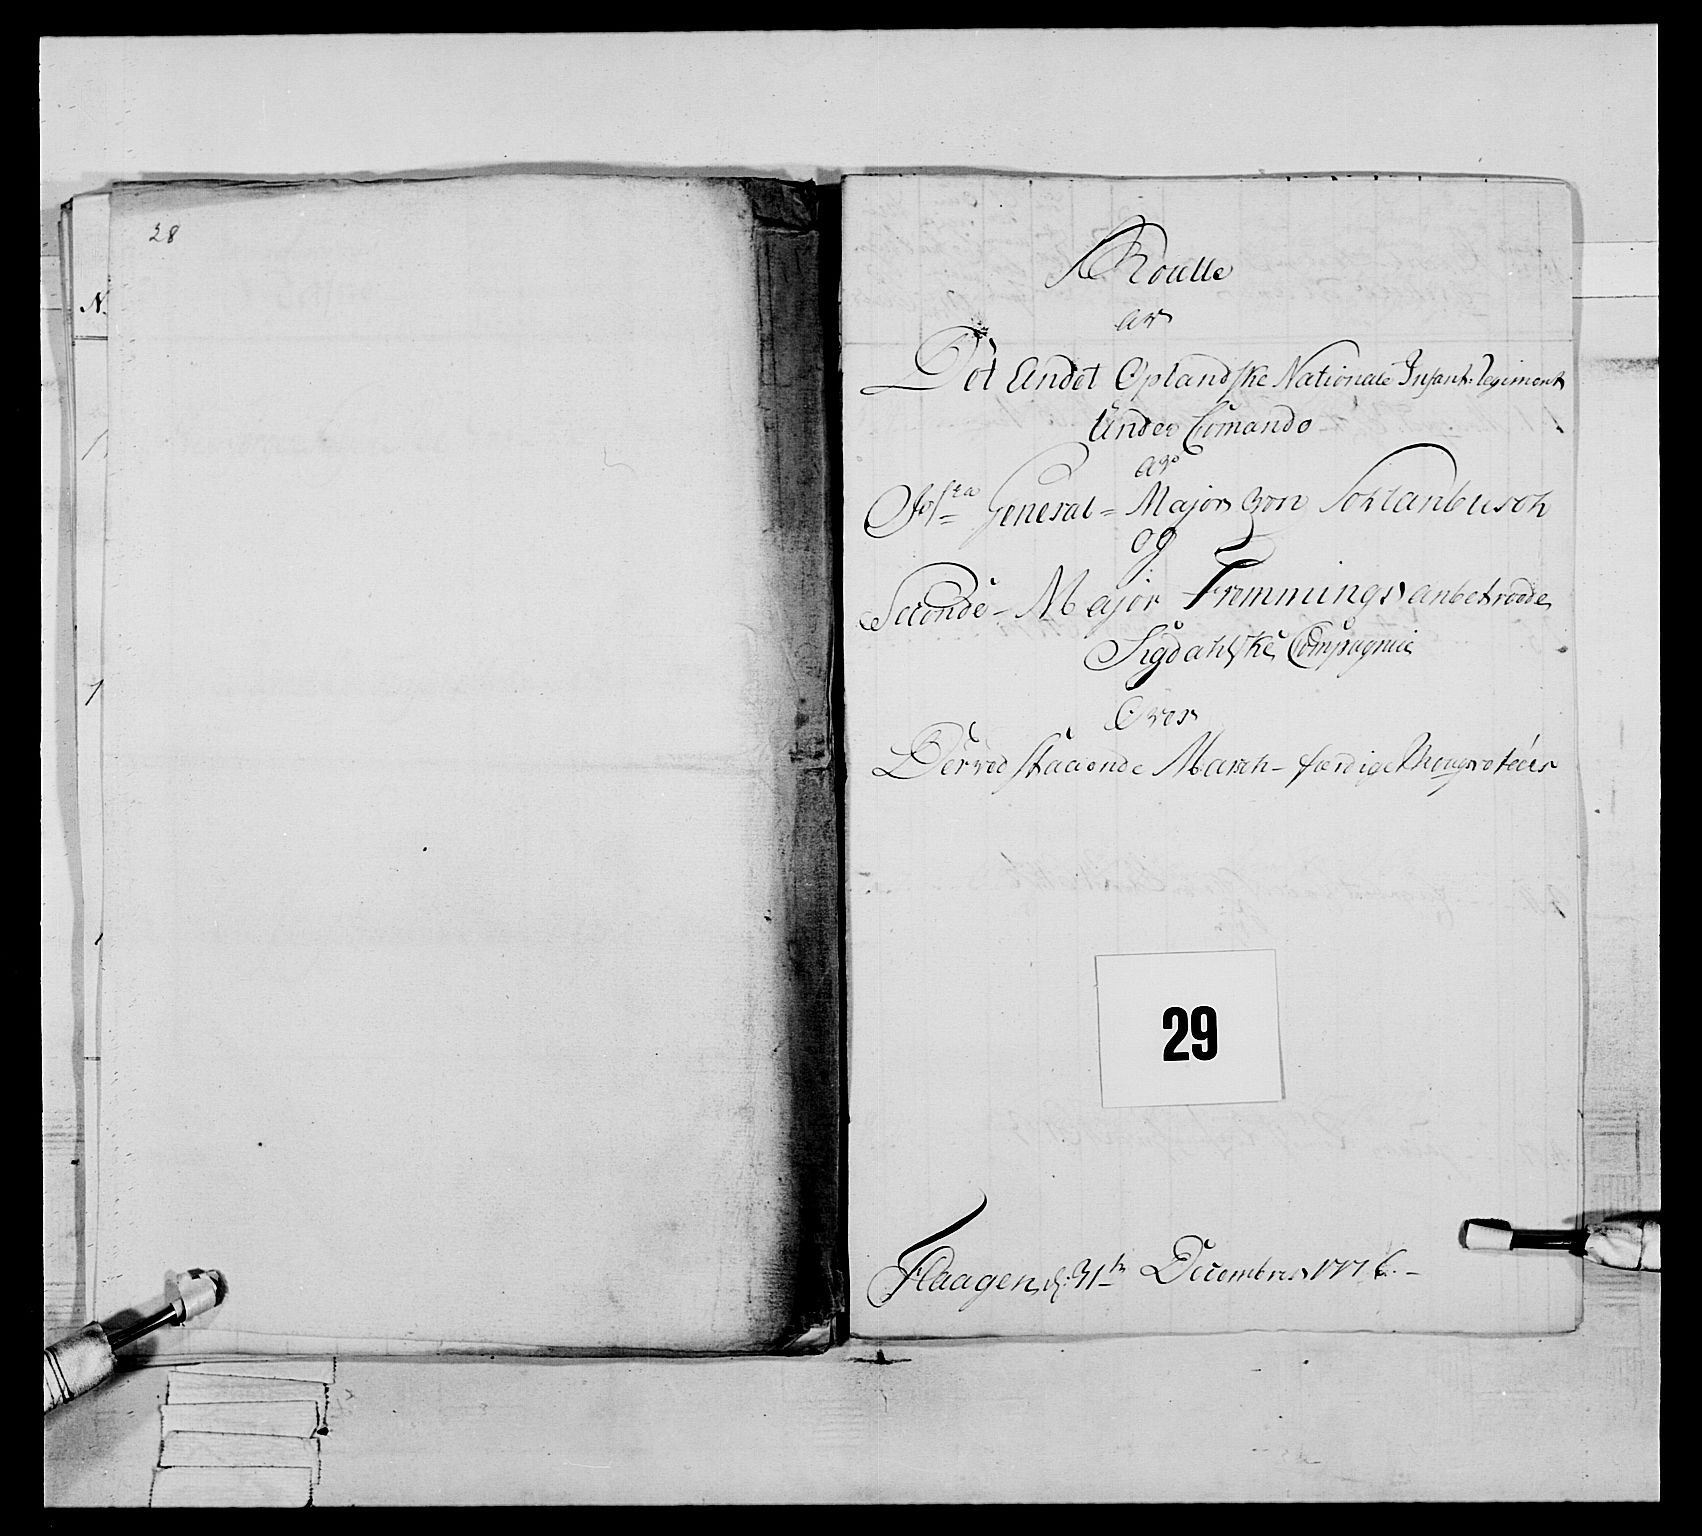 28
N.
Roulle
av
Det Andet Oplandske Nationale Infant: Regiment
Under Comando
av
General-Major von
og
Seconde-Major Fremmings anbetroede
Sigdahlske Compagnie
Over
Derved staaende March-færdige
29
Flaagen, d: 31te Decembres 1776.